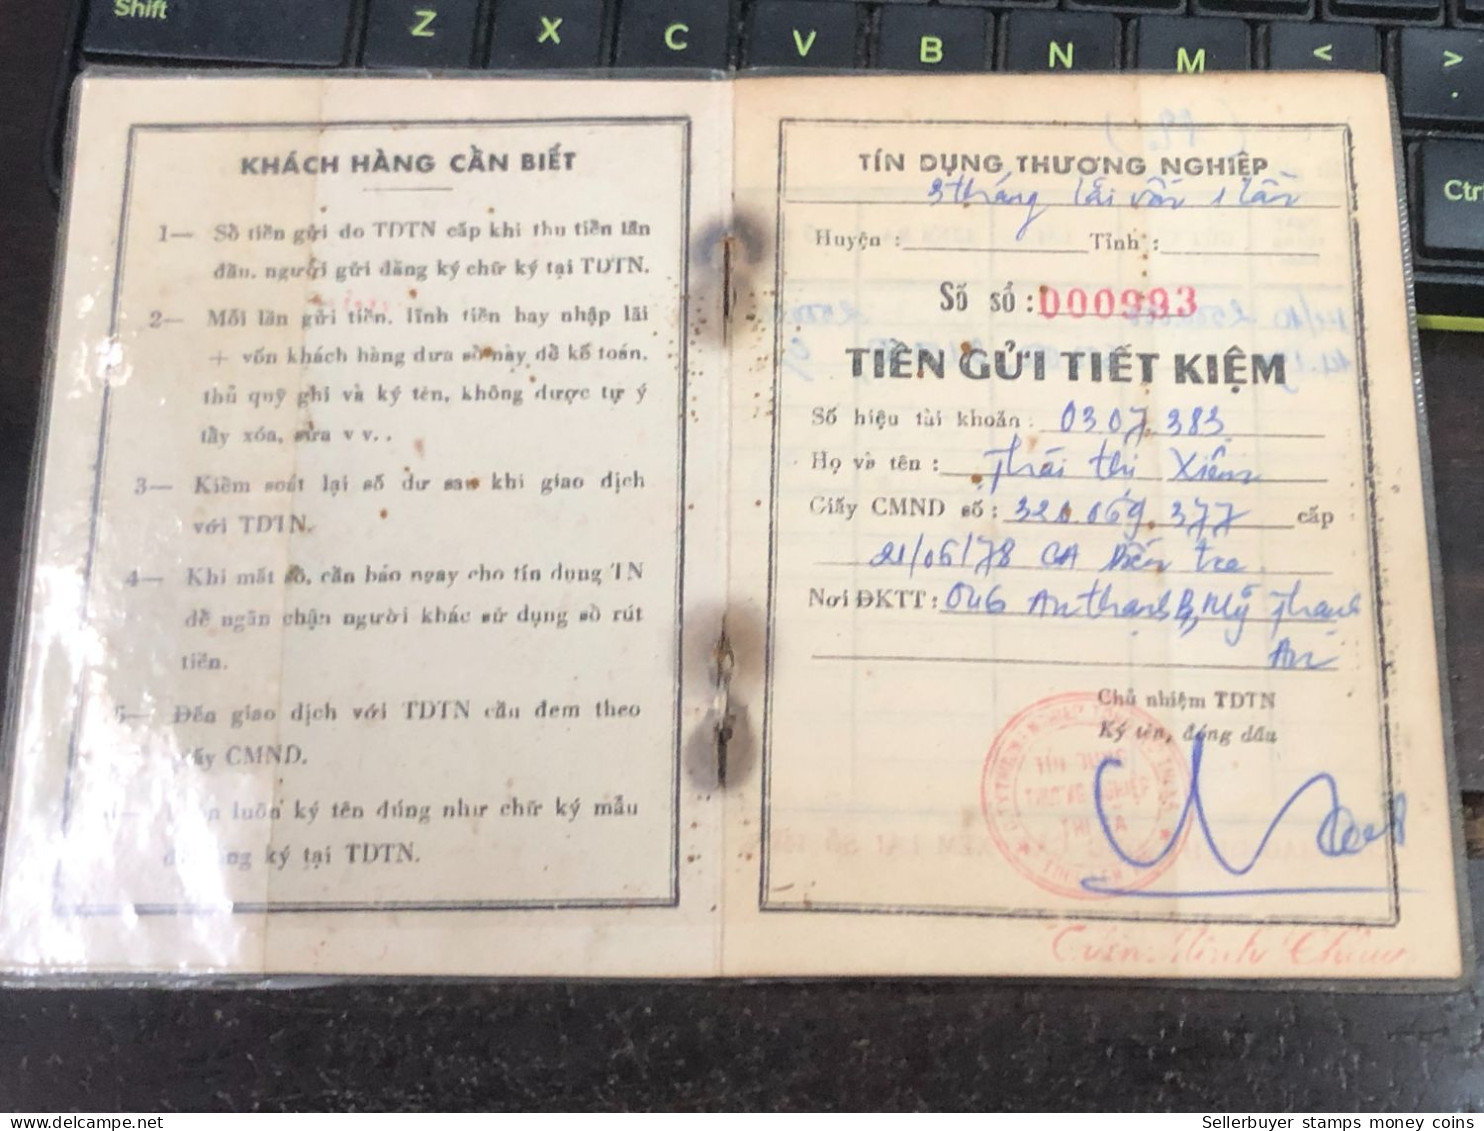 Shift Z X C V B N M < >
. Ctr
KHÁCH HÀNG CẦN BIẾT
1— Sổ tiền gửi do TDTN cấp khi thu tiền lần
đầu, người gửi đăng ký chữ ký tại TDTN.
2— Mỗi lần gửi tiền, lĩnh tiền hay nhập lãi
+ vốn khách hàng đưa sổ này để kế toán,
thủ quỹ ghi và ký tên, không được tự ý
tẩy xóa, sửa v v . .
3— Kiểm soát lại số dư sau khi giao dịch
với TDTN.
4— Khi mất sổ, cần báo ngay cho tín dụng TN
để ngăn chận người khác sử dụng sổ rút
tiền.
5— Đến giao dịch với TDTN cần đem theo
giấy CMND.
luôn ký tên đúng như chữ ký mẫu
ký tại TDTN.
TÍN DỤNG THƯƠNG NGHIỆP
3 tháng lãi vốn 1 lần
Huyện : Tỉnh :
Số sổ : 000993
TIỀN GỬI TIẾT KIỆM
Số hiệu tài khoản : 0307.383
Họ và tên : Thái Thị Xiêm
Giấy CMND số : 320.069.377 cấp
21/06/78 CA Bến Tre
Nơi ĐKTT : 046 An Thạnh B, Mỹ Thạnh
An
Chủ nhiệm TDTN
Ký tên, đóng dấu
THỊ XÃ
Sellerbuyer stamps money coins